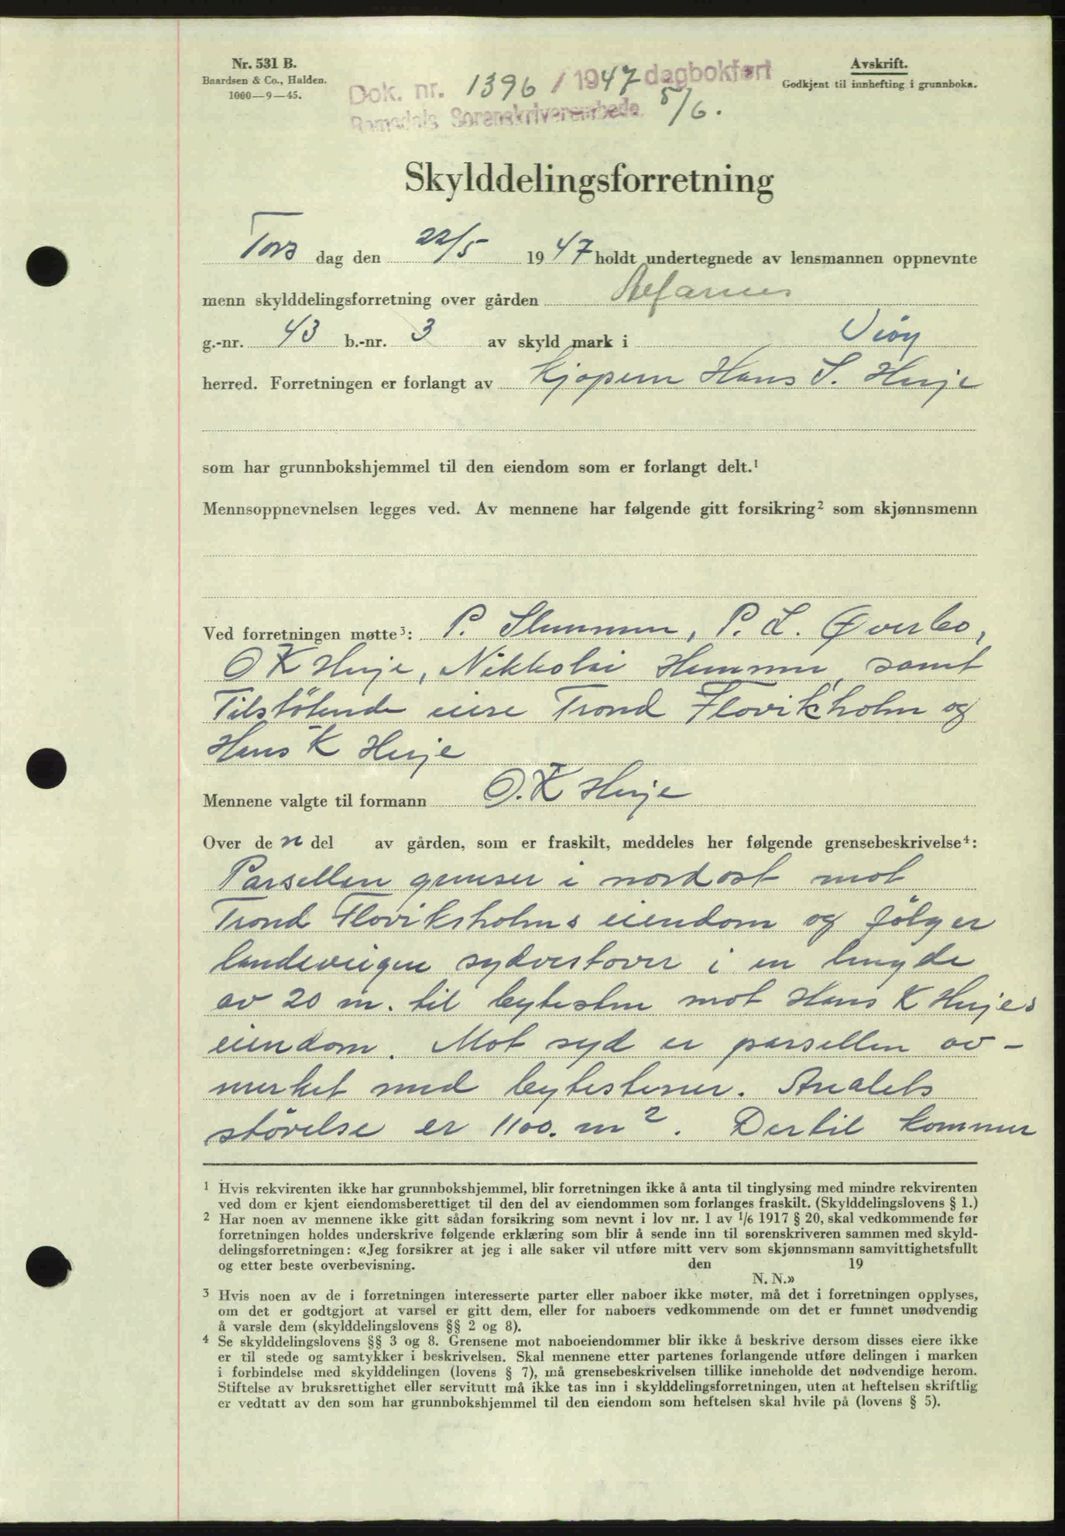 Nr. 531 B.
Baardsen & Co., Halden.
1000—9—45.
Dok. nr. 1396 / 1947 dagbokført
Romsdals Sorenskriverembede 5/6.
Avskrift.
Godkjent til innhefting i grunnboka.
Skylddelingsforretning
Tors dag den 22/5 1947 holdt undertegnede av lensmannen oppnevnte
menn skylddelingsforretning over gården
g.-nr. 43 b.-nr. 3 av skyld mark i Veøy
herred. Forretningen er forlangt av Kjøperen Hans S. Herje
som har grunnbokshjemmel til den eiendom som er forlangt delt.¹
Mennsoppnevnelsen legges ved. Av mennene har følgende gitt forsikring² som skjønnsmenn
Ved forretningen møtte³: P. P. L. Øverbø,
O K Herje, Nikkolai samt
Tilstötende eiere Trond Flovikholm og
Hans K Herje
Mennene valgte til formann O. K Herje
Over de n del av gården, som er fraskilt, meddeles her følgende grensebeskrivelse⁴:
Parsellen grenser i nordost mot
Trond Floviksholms eiendom og følger
landeveigen sydvestover i en lengde
av 20 m. til bytesten mot Hans K Herjes
eiendom. Mot syd er parsellen av-
merket med bytestener. Arealets
störelse er 1100. m². Dertil kommer
¹ Hvis rekvirenten ikke har grunnbokshjemmel, blir forretningen ikke å anta til tinglysing med mindre rekvirenten
ved dom er kjent eiendomsberettiget til den del av eiendommen som forlanges fraskilt. (Skylddelingslovens § 1.)
² Har noen av mennene ikke gitt sådan forsikring som nevnt i lov nr. 1 av 1/6 1917 § 20, skal vedkommende før
forretningen holdes underskrive følgende erklæring som blir å sende inn til sorenskriveren sammen med skyld-
delingsforretningen: «Jeg forsikrer at jeg i alle saker vil utføre mitt verv som skjønnsmann samvittighetsfullt
og etter beste overbevisning. den 19
N. N.»
³ Hvis noen av de i forretningen interesserte parter eller naboer ikke møter, må det i forretningen opplyses,
om det er godtgjort at varsel er gitt dem, eller for naboers vedkommende om det er funnet unødvendig
å varsle dem (skylddelingslovens §§ 2 og 8).
⁴ Se skylddelingslovens §§ 3 og 8. Grensene mot naboeiendommer blir ikke å beskrive dersom disses eiere ikke
er til stede og samtykker i beskrivelsen. Skal mennene etter partenes forlangende utføre delingen i marken
i forbindelse med skylddelingen (lovens § 7), må grensebeskrivelsen tillike inneholde det nødvendige herom.
Stiftelse av bruksrettighet eller servitutt må ikke tas inn i skylddelingsforretningen, uten at heftelsen skriftlig
er vedtatt av den som har grunnbokshjemmel til den eiendom som heftelsen skal hvile på (lovens § 5).